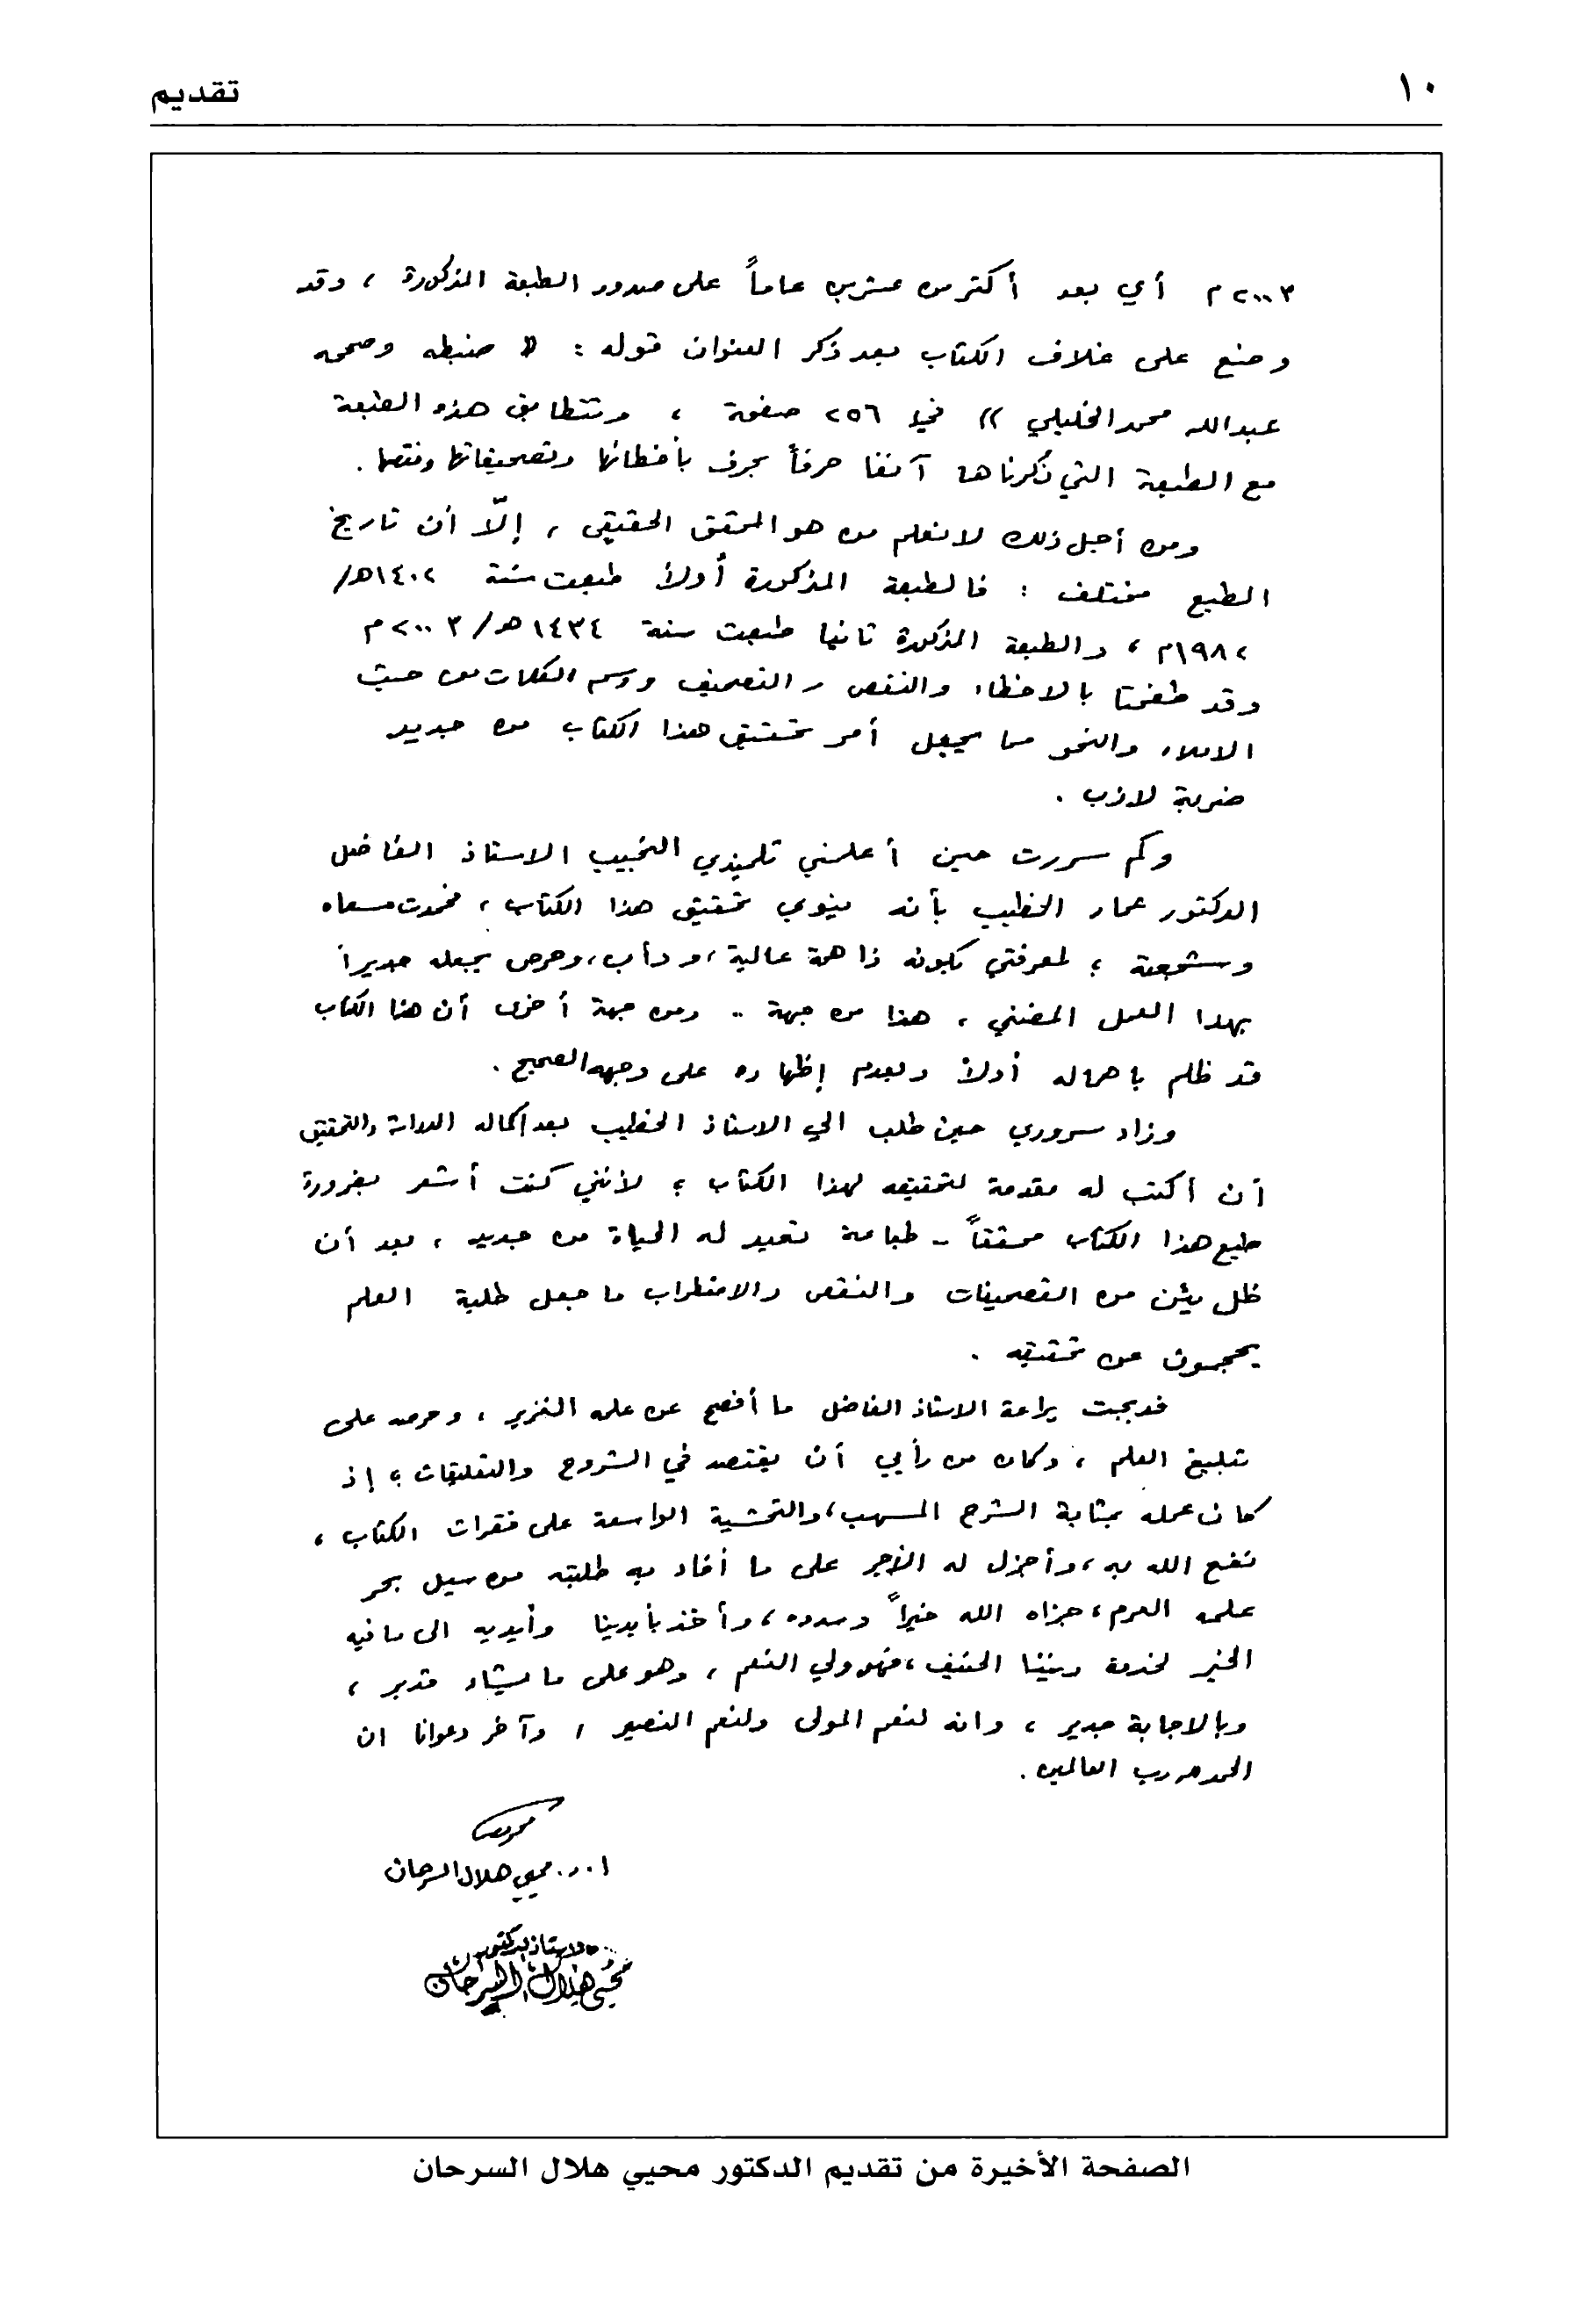 ١٠
تقديم
٢٠٠٣م أي بعد أكثر من عشرين عاماً على صدور الطبعة المذكورة ، وقد
وضع على غلاف الكتاب بعد ذكر العنوان قوله : « ضبطه وصححه
عبدالله محمد الخليلي » في ٢٥٦ صفحة ، وتتطابق هذه الطبعة
مع الطبعة التي ذكرناها آنفا حرفاً بحرف بأخطائها وتصحيفاتها ونقصها .
ومن أجل ذلك لا نعلم من هو المحقق الحقيقي ، إلّا أن تاريخ
الطبع مختلف : فالطبعة المذكورة أولاً طبعت سنة ١٤٠٢هـ/
١٩٨٢م ، والطبعة المذكورة ثانيا طبعت سنة ١٤٣٤هـ/٢٠٠٣م
وقد طفحتا بالاخطاء والنقص والتصحيف ورسم الكلمات من حيث
الاملاء والنحو مما يجعل أمر تحقيق هذا الكتاب من جديد
ضربة لازب .
وكم سررت حين أعلمني تلميذي النجيب الاستاذ الفاضل
الدكتور عمار الخطيب بأنه ينوي تحقيق هذا الكتاب ، فحمدت مسعاه
وشجعته ؛ لمعرفتي بكونه ذا همة عالية ، ودأب ، وحرص يجعله جديراً
بهذا العمل المضني ، هذا من جهة .. ومن جهة أخرى أن هذا الكتاب
قد ظلم باهماله أولاً وبعدم إظهاره على وجهه الصحيح .
وزاد سروري حين طلب الي الاستاذ الخطيب بعد إكماله الدراسة والتحقيق
أن أكتب له مقدمة لتحقيقه لهذا الكتاب ؛ لأنني كنت أشعر بضرورة
طبع هذا الكتاب محققاً - طباعة تعيد له الحياة من جديد ، بعد أن
ظل يئن من التصحيفات والنقص والاضطراب ما جعل طلبة العلم
يحجمون عن تحقيقه .
فدبجت يراعة الاستاذ الفاضل ما أفصح عن علمه الغزير ، وحرصه على
تبليغ العلم ، وكان من رأيي أن يقتصد في الشروح والتعليقات ؛ إذ
كان عمله بمثابة الشرح المسهب ، والتحشية الواسعة على فقرات الكتاب ،
نفع الله به ، وأجزل له الأجر على ما أفاد به طلبته من سيل بحر
علمه العرم ، جزاه الله خيراً وسدده ، وأخذ بأيدينا وأيديه الى ما فيه
الخير لخدمة ديننا الحنيف ، فهو ولي النعم ، وهو على ما يشاء قدير ،
وبالاجابة جدير ، وانه لنعم المولى ولنعم النصير ، وآخر دعوانا ان
الحمد لله رب العالمين .
ا.د. محيي هلال السرحان
الاستاذ الدكتور
محيي هلال السرحان
الصفحة الأخيرة من تقديم الدكتور محيي هلال السرحان